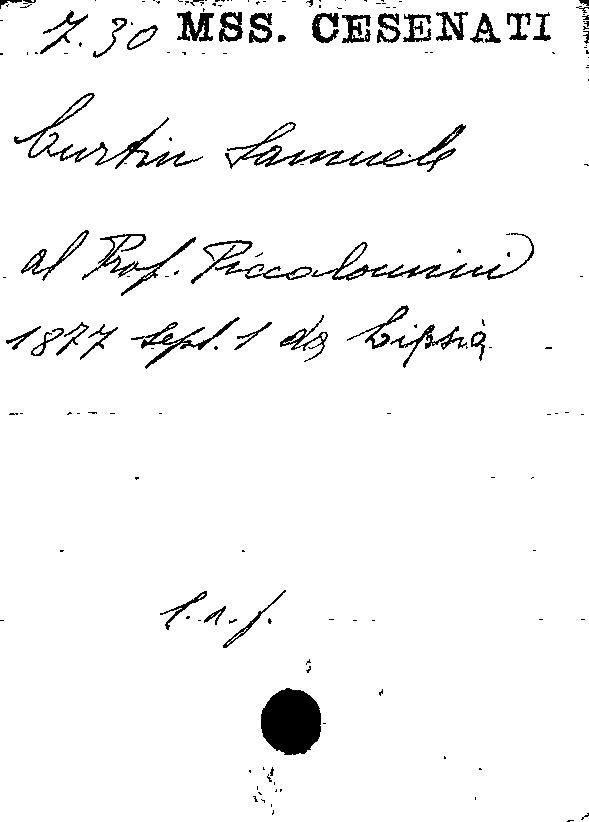 7.30 MSS. CESENATI
Curtin Samuele
al Prof. Piccolomini
1877 sept. 1 da Lipsia
l.a.f.